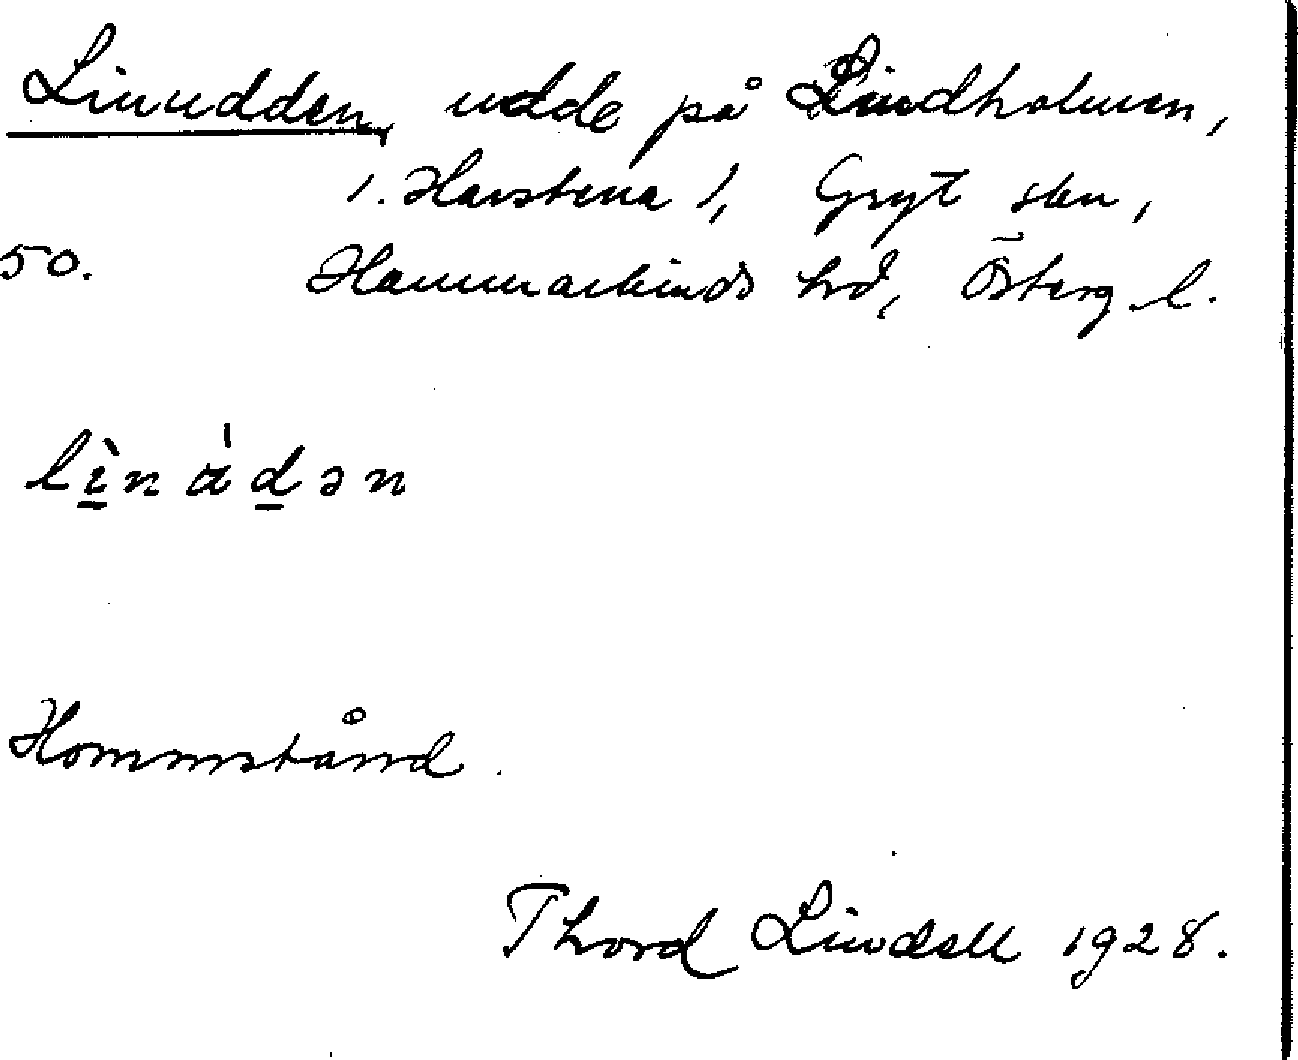 Linudden, udde på Lindholmen,
i. Harstena 1, Gryt skn,
50. Hammarkinds hd, Österg l.
lìnàdən
Hommstånd.
Thord Lindell 1928.